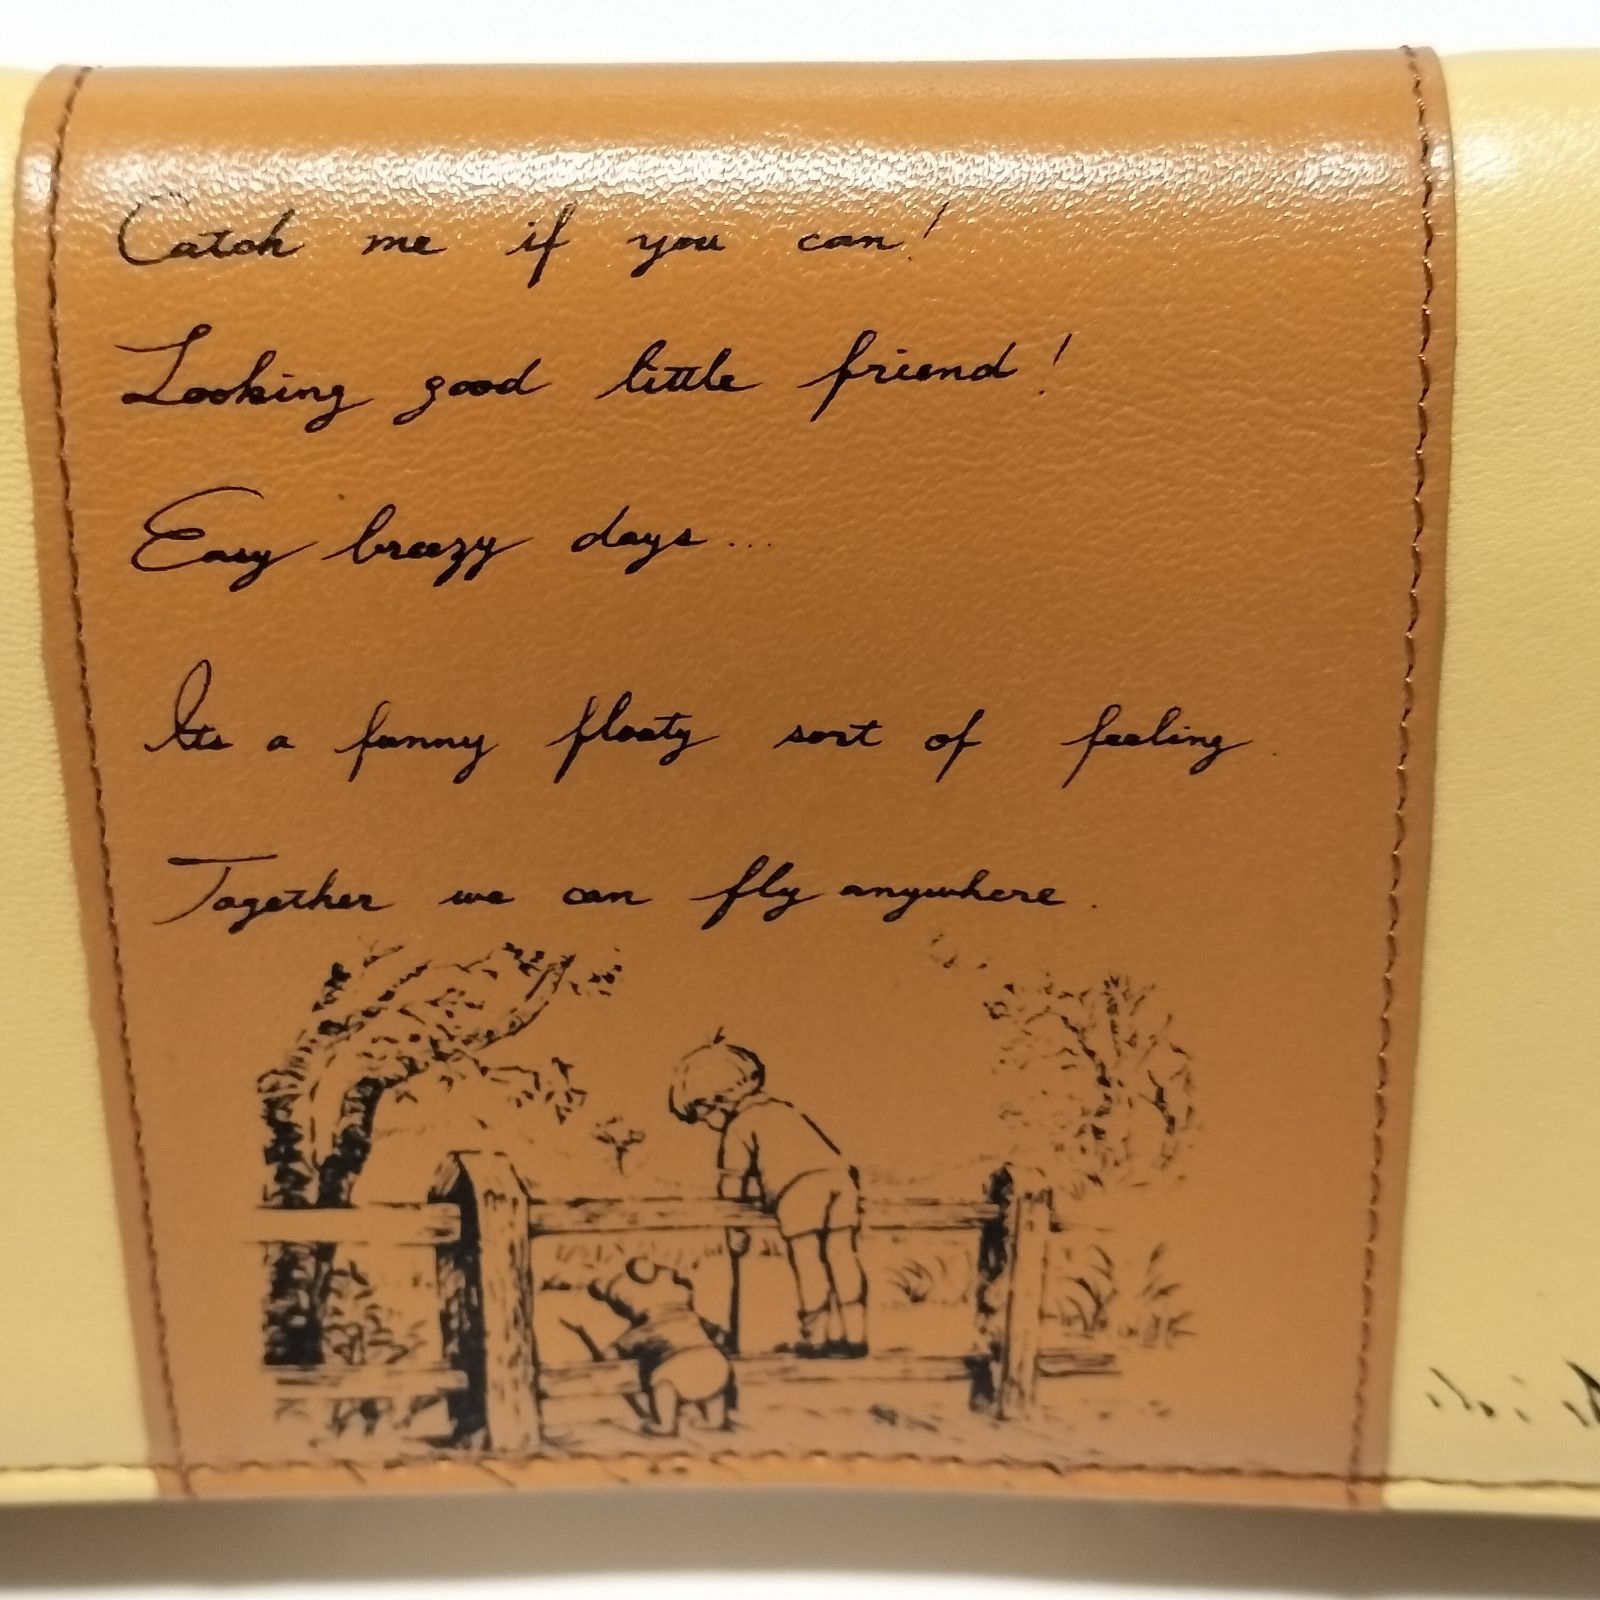 Catch me if you can!
Looking good little friend!
Easy breezy days...
Its a funny floaty sort of feeling.
Together we can fly anywhere.